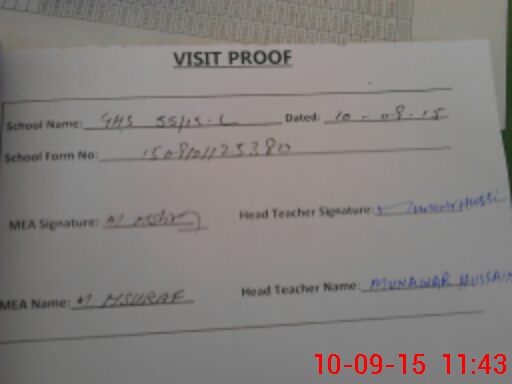 VISIT PROOF
School Name: GHS 55/15-L Dated: 10-09-15
School Form No:
MEA Signature: Head Teacher Signature:
MEA Name: M Head Teacher Name: MUNAWAR HUSSAIN
10-09-15 11:43